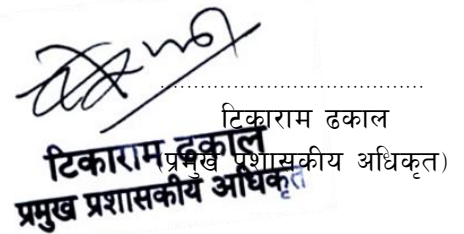 ........................................
टिकाराम ढकाल
(प्रमुख प्रशासकीय अधिकृत)
टिकाराम ढकाल
प्रमुख प्रशासकीय अधिकृत